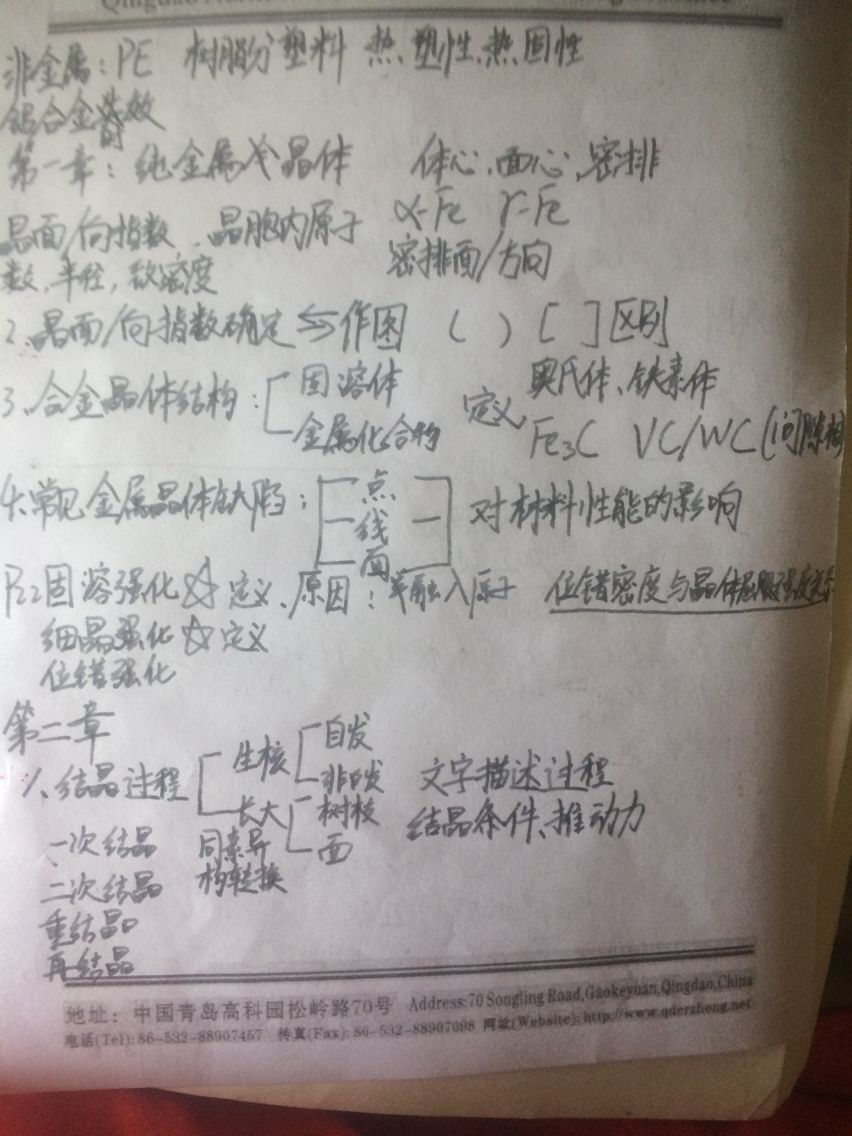 非金属:PE 树脂分塑料 热塑性、热固性
铝合金时效
第一章:纯金属 晶体 体心、面心、密排
α-Fe γ-Fe
晶面/向指数、晶胞内原子
密排面/方向
数、半径,致密度
2、晶面/向指数确定 作图 ( ) [ ] 区别
3、合金晶体结构: 固溶体 奥氏体、铁素体
金属化合物 定义 Fe₃C VC/WC(间隙相
4、常见金属晶体缺陷: 点
线 对材料性能的影响
面
P22固溶强化☆定义、原因: 融入原子 位错密度与晶体屈服强度关系
细晶强化☆定义
位错强化
第二章
1、结晶过程 生核 自发
非自发 文字描述过程
长大 树枝 结晶条件、推动力
面
一次结晶 同素异
构转换
二次结晶
重结晶
再结晶
地址:中国青岛高科园松岭路70号 Address:70 Songling Road,Gaokeyuan,Qingdao,China
电话(Tel):86-532-88907457 传真(Fax):86-532-88907098 网址(Website):http://www.qderzhong.net